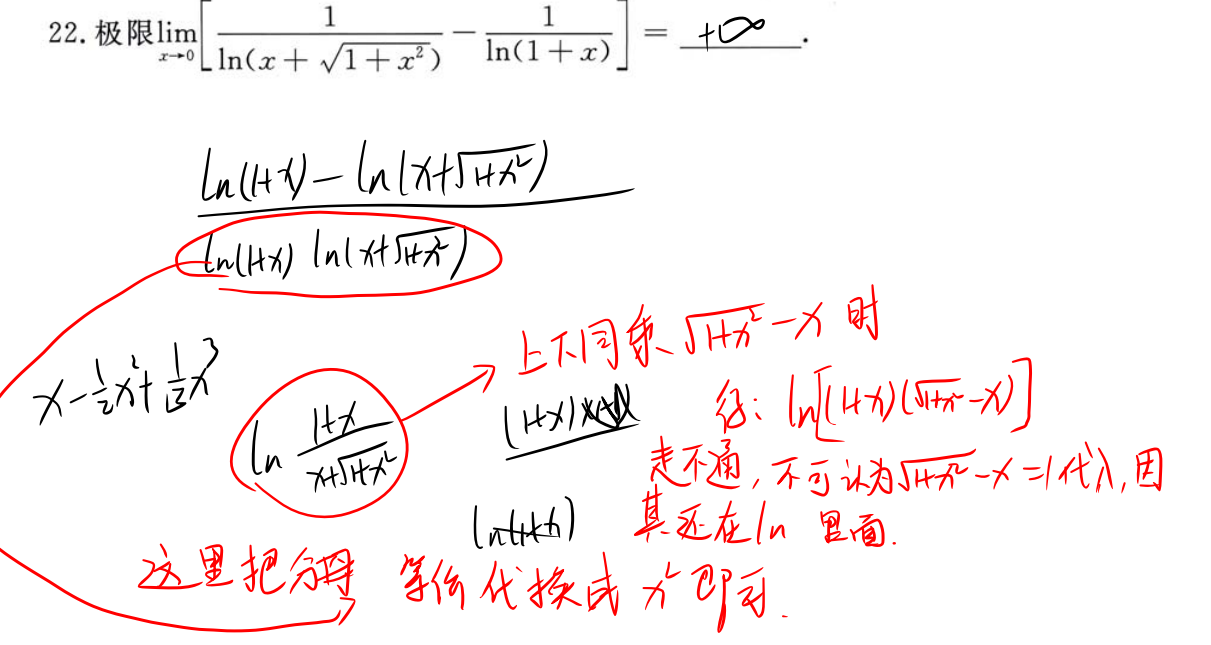 22. 极限lim x→0 [1/ln(x + √(1 + x²)) − 1/ln(1 + x)] = +∞.
ln(1+x) − ln(x+√(1+x²))
ln(1+x) ln(x+√(1+x²))
上下同乘 √(1+x²) − x 时
x − 1/2 x² + 1/3 x³
ln (1+x)/(x+√(1+x²))
(1+x)
得: ln[(1+x)(√(1+x²) − x)]
走不通, 不可认为√(1+x²) − x = 1代入, 因
其还在ln 里面.
这里把分母 等价代换成 x² 即可.